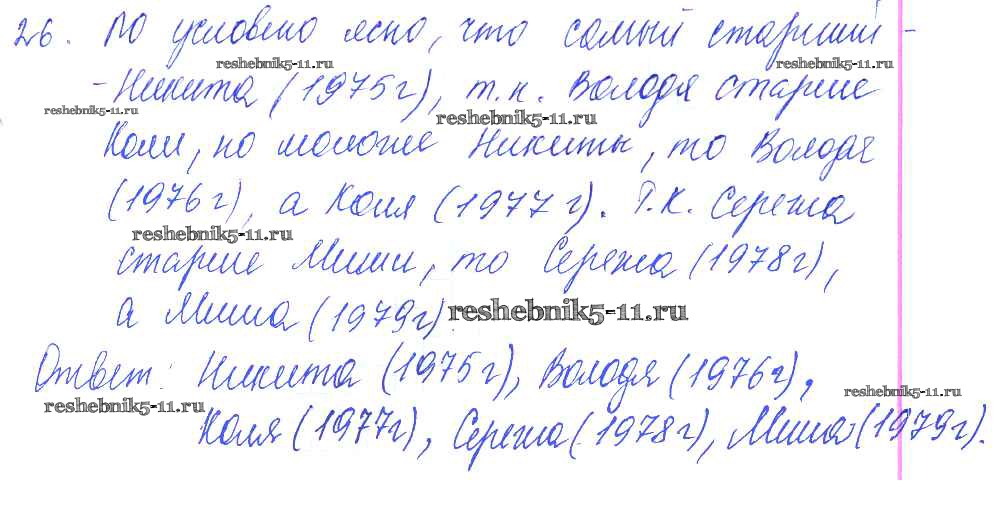 26. По условию ясно, что самый старший -
reshebnik5-11.ru reshebnik5-11.ru
- Никита (1975г), т.к. Володя старше
reshebnik5-11.ru reshebnik5-11.ru
Коли, но моложе Никиты, то Володя
(1976г), а Коля (1977г). Т.К. Сережа
reshebnik5-11.ru
старше Миши, то Сережа (1978г),
а Миша (1979г).
reshebnik5-11.ru
Ответ: Никита (1975г), Володя (1976г),
reshebnik5-11.ru reshebnik5-11.ru
Коля (1977г), Сережа (1978г), Миша (1979г).